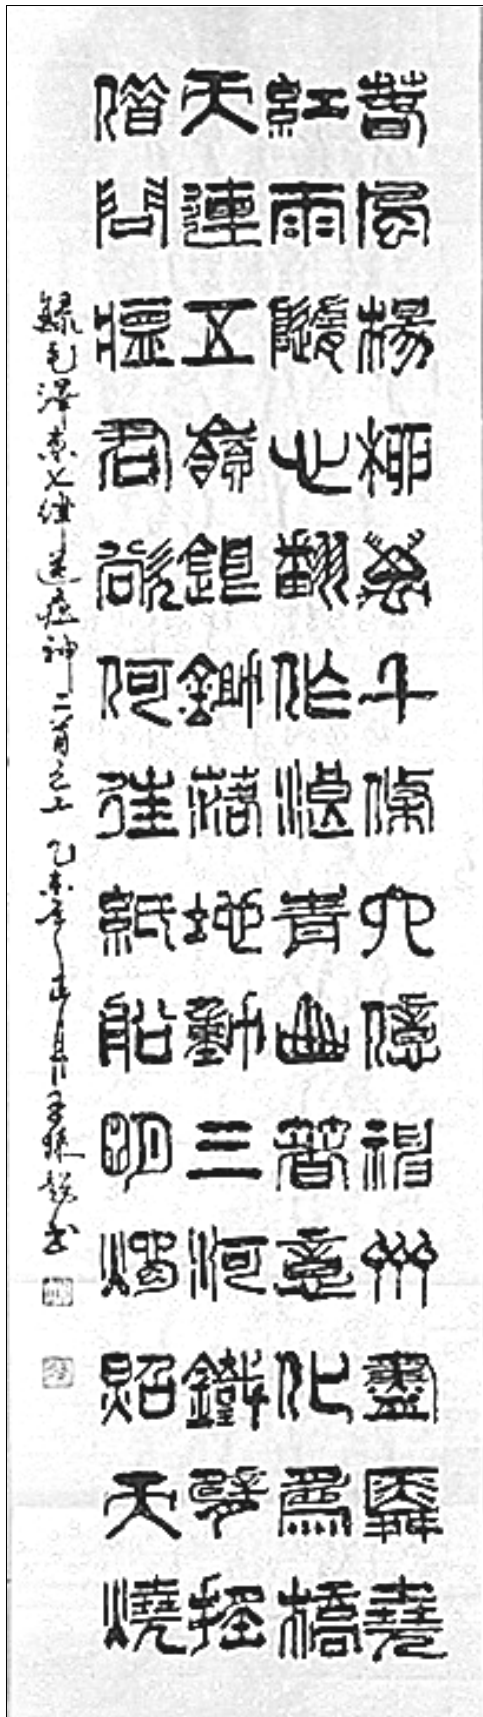 春風楊柳萬千條六億神州盡舜堯
紅雨隨心翻作浪青山著意化爲橋
天連五嶺銀鋤落地動三河鐵臂搖
借問瘟君欲何往紙船明燭照天燒
錄毛澤東七律送瘟神二首之二 乙未年 書